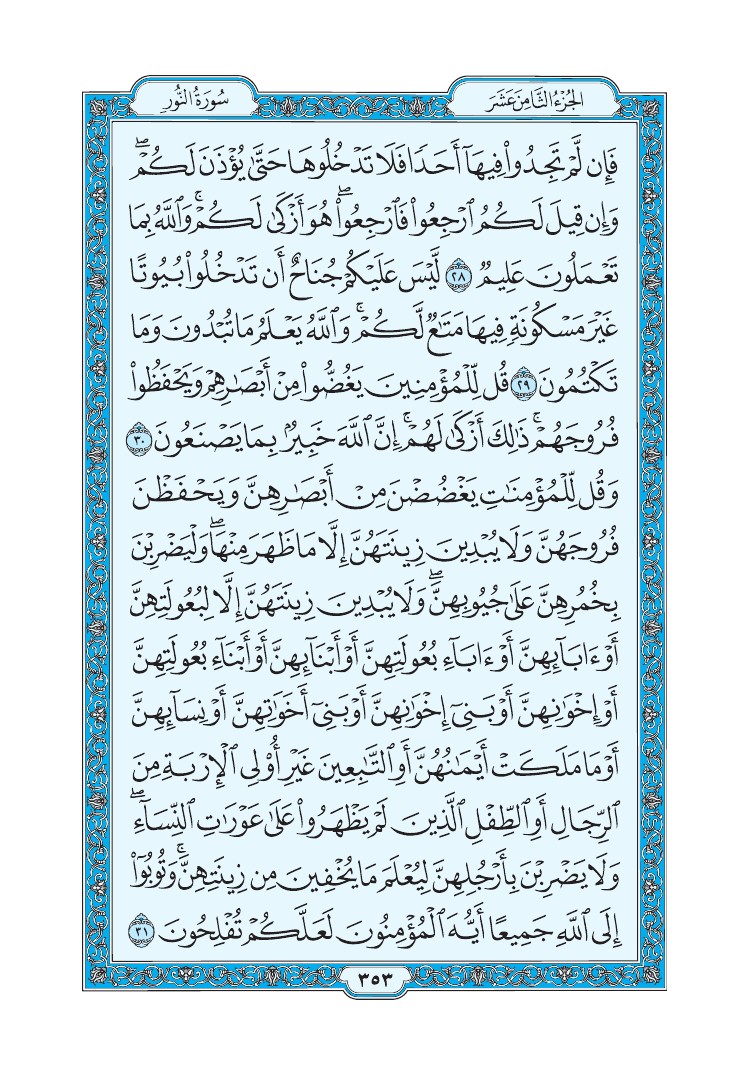 الجُزْءُ الثَّامِنَ عَشَرَ
سُورَةُ النُّور
فَإِن لَّمْ تَجِدُوا۟ فِيهَآ أَحَدًۭا فَلَا تَدْخُلُوهَا حَتَّىٰ يُؤْذَنَ لَكُمْ ۖ
وَإِن قِيلَ لَكُمُ ٱرْجِعُوا۟ فَٱرْجِعُوا۟ ۖ هُوَ أَزْكَىٰ لَكُمْ ۚ وَٱللَّهُ بِمَا
تَعْمَلُونَ عَلِيمٌۭ ٢٨ لَّيْسَ عَلَيْكُمْ جُنَاحٌ أَن تَدْخُلُوا۟ بُيُوتًا
غَيْرَ مَسْكُونَةٍۢ فِيهَا مَتَٰعٌۭ لَّكُمْ ۚ وَٱللَّهُ يَعْلَمُ مَا تُبْدُونَ وَمَا
تَكْتُمُونَ ٢٩ قُل لِّلْمُؤْمِنِينَ يَغُضُّوا۟ مِنْ أَبْصَٰرِهِمْ وَيَحْفَظُوا۟
فُرُوجَهُمْ ۚ ذَٰلِكَ أَزْكَىٰ لَهُمْ ۗ إِنَّ ٱللَّهَ خَبِيرٌۢ بِمَا يَصْنَعُونَ ٣٠
وَقُل لِّلْمُؤْمِنَٰتِ يَغْضُضْنَ مِنْ أَبْصَٰرِهِنَّ وَيَحْفَظْنَ
فُرُوجَهُنَّ وَلَا يُبْدِينَ زِينَتَهُنَّ إِلَّا مَا ظَهَرَ مِنْهَا ۖ وَلْيَضْرِبْنَ
بِخُمُرِهِنَّ عَلَىٰ جُيُوبِهِنَّ ۖ وَلَا يُبْدِينَ زِينَتَهُنَّ إِلَّا لِبُعُولَتِهِنَّ
أَوْ ءَابَآئِهِنَّ أَوْ ءَابَآءِ بُعُولَتِهِنَّ أَوْ أَبْنَآئِهِنَّ أَوْ أَبْنَآءِ بُعُولَتِهِنَّ
أَوْ إِخْوَٰنِهِنَّ أَوْ بَنِىٓ إِخْوَٰنِهِنَّ أَوْ بَنِىٓ أَخَوَٰتِهِنَّ أَوْ نِسَآئِهِنَّ
أَوْ مَا مَلَكَتْ أَيْمَٰنُهُنَّ أَوِ ٱلتَّٰبِعِينَ غَيْرِ أُو۟لِى ٱلْإِرْبَةِ مِنَ
ٱلرِّجَالِ أَوِ ٱلطِّفْلِ ٱلَّذِينَ لَمْ يَظْهَرُوا۟ عَلَىٰ عَوْرَٰتِ ٱلنِّسَآءِ ۖ
وَلَا يَضْرِبْنَ بِأَرْجُلِهِنَّ لِيُعْلَمَ مَا يُخْفِينَ مِن زِينَتِهِنَّ ۚ وَتُوبُوٓا۟
إِلَى ٱللَّهِ جَمِيعًا أَيُّهَ ٱلْمُؤْمِنُونَ لَعَلَّكُمْ تُفْلِحُونَ ٣١
٣٥٣